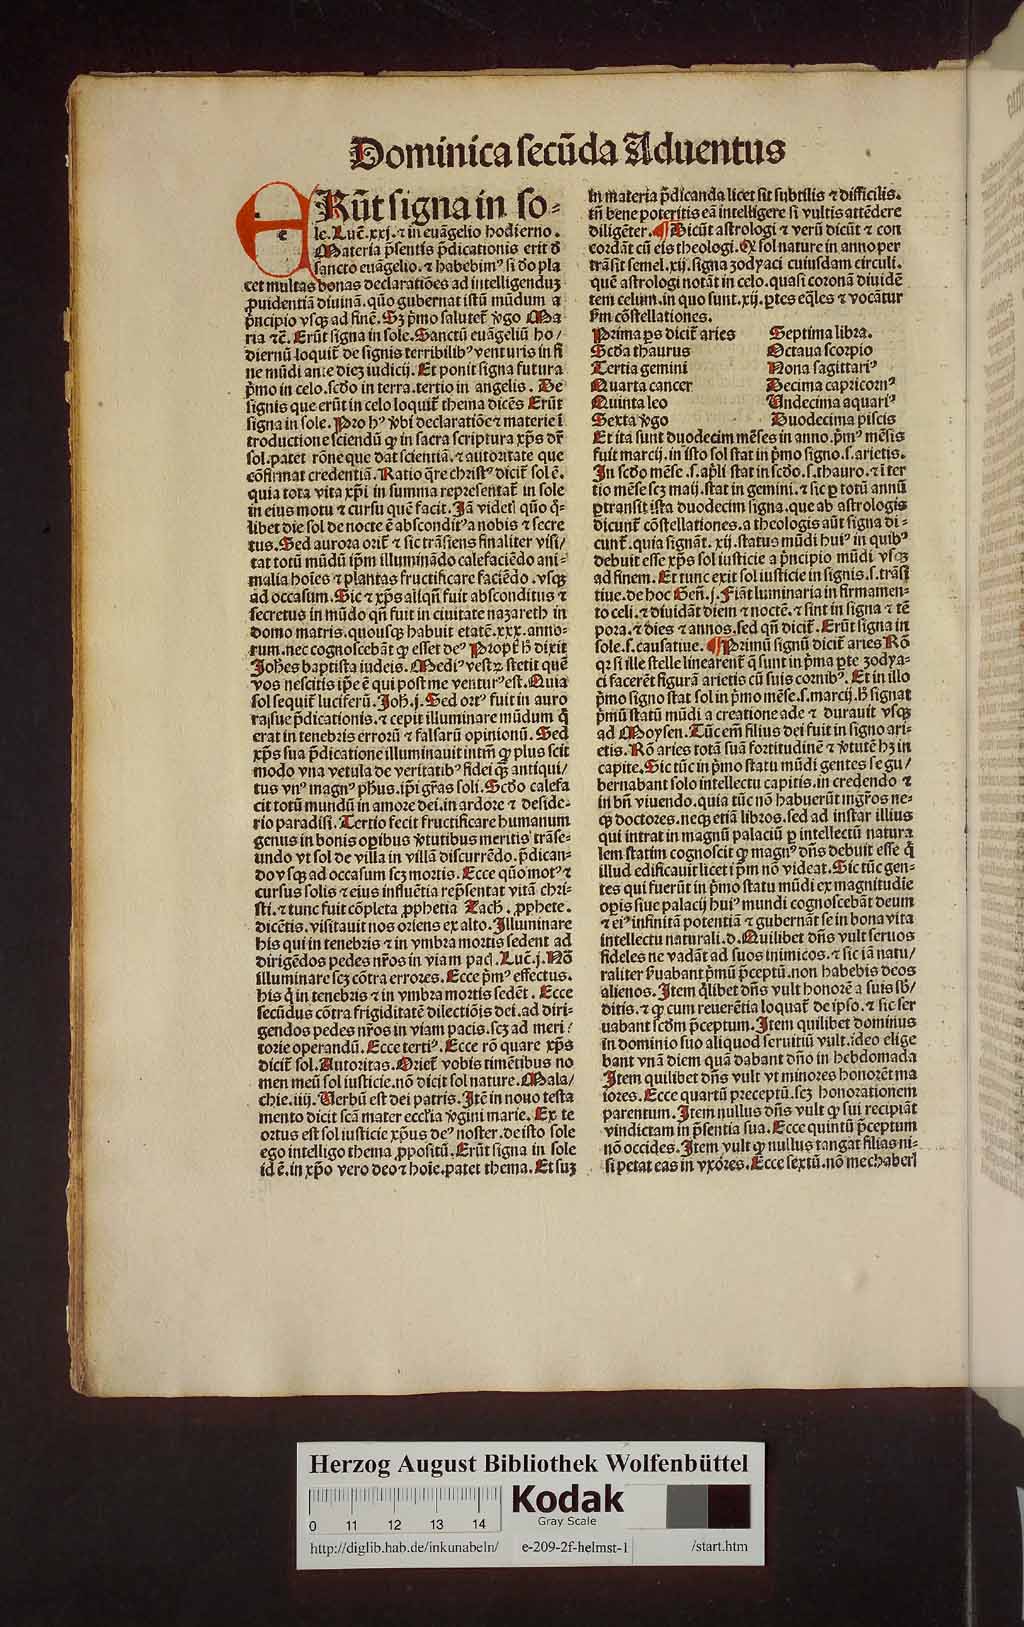 Dominica secūda Aduentus
ERūt signa in so-
le. Luc̄. xxj. ⁊ in euāgelio hodierno.
Materia p̄sentis p̄dicationis erit d̄
sancto euāgelio. ⁊ habebimꝰ si d̄o pla
cet multas bonas declaratiōes ad intelligenduꝫ
ꝓuidentiā diuinā. quō gubernat istū mūdum a
p̄ncipio vsqꝫ ad finē. Sꝫ p̄mo salutet̄ v̓go Ma
ria ⁊c̄. Erūt signa in sole. Sanctū euāgeliū ho/
diernū loquit̄ de signis terribilibꝰ venturis in fi
ne mūdi ante dieꝫ iudicij. Et ponit signa futura
p̄mo in celo. scd̄o in terra. tertio in angelis. De
signis que erūt in celo loquit̄ thema dicēs Erūt
signa in sole. Pro hꝰ v̓bi declaratiōe ⁊ materie ī
troductione sciendū ꝙ in sacra scriptura xp̄s dr̄
sol. patet rōne que dat scientiā. ⁊ autoritate que
cōfirmat credentiā. Ratio q̄re christꝰ dicit̄ sol ē.
quia tota vita xp̄i in summa representat̄ in sole
in eius motu ⁊ cursu quē facit. Jā videtꝭ quō q̄-
libet die sol de nocte ē absconditꝰ a nobis ⁊ secre
tus. Sed aurora orit̄ ⁊ sic trāsiens finaliter visi/
tat totū mūdū ip̄m illuminādo calefaciēdo ani-
malia hoīes ⁊ plantas fructificare faciēdo. vsqꝫ
ad occasum. Sic ⁊ xp̄s alīqn̄ fuit absconditus ⁊
secretus in mūdo qn̄ fuit in ciuitate nazareth in
domo matris. quousqꝫ habuit etatē. xxx. anno-
rum. nec cognoscebāt ꝙ esset deꝰ Propt̄ h̄ dixit
Johēs baptista iudeis. Mediꝰ vestꝝ stetit quē
vos nescitis ip̄e ē qui post me venturꝰ est. Quia
sol sequit̄ luciferū. Joh̄. j. Sed ortꝰ fuit in auro
ra sue p̄dicationis. ⁊ cepit illuminare mūdum q̄
erat in tenebris errorū ⁊ falsarū opinionū. Sed
xp̄s sua p̄dicatione illuminauit intm̄ ꝙ plus scit
modo vna vetula de veritatibꝰ fidei qꝫ antiqui/
tus vnꝰ magnꝰ ph̄us. ip̄i gr̄as soli. Scd̄o calefa
cit totū mundū in amore dei. in ardore ⁊ deside-
rio paradisi. Tertio fecit fructificare humanum
genus in bonis oꝑibus v̓tutibus meritis trāse-
undo vt sol de villa in villā discurrēdo. p̄dican-
do vsqꝫ ad occasum scꝫ mortis. Ecce quō motꝰ ⁊
cursus solis ⁊ eius influētia rep̄sentat vitā chri-
sti. ⁊ tunc fuit cōpleta ꝓphetia Zach̄. ꝓphete.
dicētis. visitauit nos oriens ex alto. Illuminare
his qui in tenebris ⁊ in vmbra mortis sedent ad
dirigēdos pedes nr̄os in viam pacꝭ. Luc̄. j. Nō
illuminare scꝫ cōtra errores. Ecce p̄mꝰ effectus.
his q̄ in tenebris ⁊ in vmbra mortis sedēt. Ecce
secūdus cōtra frigiditatē dilectiōis dei. ad diri-
gendos pedes nr̄os in viam pacis. scꝫ ad meri :
torie operandū. Ecce tertiꝰ. Ecce rō quare xp̄s
dicit̄ sol. Autoritas. Oriet̄ vobis timētibus no
men meū sol iusticie. nō dicit sol nature. Mala/
chie. iiij. Verbū est dei patris. Itē in nouo testa
mento dicit scā mater eccl̄ia v̓gini marie. Ex te
ortus est sol iusticie xp̄us deꝰ noster. de isto sole
ego intelligo thema ꝓpositū. Erūt signa in sole
id ē. in xp̄o vero deo ⁊ hoīe. patet thema. Et suꝫ
in materia p̄dicanda licet sit subtilis ⁊ difficilis.
tn̄ bene poteritis eā intelligere si vultis attēdere
diligēter. ¶ Dicūt astrologi ⁊ verū dicūt ⁊ con
cordāt cū eis theologi. Qꝫ sol nature in anno per
trāsit semel. xij. signa zodyaci cuiusdam circuli.
quē astrologi notāt in celo. quasi coronā diuidē
tem celum. in quo sunt. xij. ꝑtes eq̄les ⁊ vocātur
km̄ cōstellationes.
Prima ꝑs dicit̄ aries Septima libra.
Scd̄a thaurus Octaua scorpio
Tertia gemini Nona sagittariꝰ
Quarta cancer Decima capricornꝰ
Quinta leo Undecima aquariꝰ
Sexta v̓go Duodecima piscis
Et ita sunt duodecim mēses in anno. p̄mꝰ mēsis
fuit marcij. in isto sol stat in p̄mo signo. s. arietis.
In scd̄o mēse. s. apl̄i stat in scd̄o. s. thauro. ⁊ ī ter
tio mēse scꝫ maij. stat in gemini. ⁊ sic ꝑ totū annū
ꝑtransit ista duodecim signa. que ab astrologis
dicunt̄ cōstellationes. a theologis aūt signa di-
cunt̄. quia signāt. xij. status mūdi huiꝰ in quibꝰ
debuit esse xp̄s sol iusticie a p̄ncipio mūdi vsqꝫ
ad finem. Et tunc exit sol iusticie in signis. s. trāsi
tiue. de hoc Gen̄. j. Fiāt luminaria in firmamen-
to celi. ⁊ diuidāt diem ⁊ noctē. ⁊ sint in signa ⁊ tē
pora. ⁊ dies ⁊ annos. sed qn̄ dicit̄. Erūt signa in
sole. s. causatiue. ¶ Primū signū dicit̄ aries Rō
qꝛ si ille stelle linearent̄ q̄ sunt in p̄ma ꝑte zodya-
ci facerēt figurā arietis cū suis cornibꝰ. Et in illo
p̄mo signo stat sol in p̄mo mēse. s. marcij. h̄ signat
p̄mū statū mūdi a creatione ade ⁊ durauit vsqꝫ
ad Moysen. Tūc em̄ filius dei fuit in signo ari-
etis. Rō aries totā suā fortitudinē ⁊ v̓tutē hꝫ in
capite. Sic tūc in p̄mo statu mūdi gentes se gu/
bernabant solo intellectu capitis. in credendo ⁊
in bn̄ viuendo. quia tūc nō habuerūt mgr̄os ne-
qꝫ doctores. neqꝫ etiā libros. sed ad instar illius
qui intrat in magnū palaciū ꝑ intellectū natura
lem statim cognoscit ꝙ magnꝰ dn̄s debuit esse q̄
illud edificauit licet ip̄m nō videat. Sic tūc gen-
tes qui fuerūt in p̄mo statu mūdi ex magnitudie
oꝑis siue palacij huiꝰ mundi cognoscebāt deum
⁊ eiꝰ infinitā potentiā ⁊ gubernāt se in bona vita
intellectu naturali. d. Quilibet dn̄s vult seruos
fideles ne vadāt ad suos inimicos. ⁊ sic iā natu/
raliter s̓uabant p̄mū p̄ceptū. non habebis deos
alienos. Item q̄libet dn̄s vult honorē a suis sb̄/
ditis. ⁊ ꝙ cum reuerētia loquat̄ de ipso. ⁊ sic ser
uabant scd̄m p̄ceptum. Item quilibet dominus
in dominio suo aliquod seruitiū vult. ideo elige
bant vnā diem quā dabant dn̄o in hebdomada
Item quilibet dn̄s vult vt minores honorēt ma
iores. Ecce quartū preceptū. scꝫ honorationem
parentum. Item nullus dn̄s vult ꝙ sui recipiāt
vindictam in p̄sentia sua. Ecce quintū p̄ceptum
nō occides. Item vult ꝙ nullus tangat filias ni-
si petat eas in vxōres. Ecce sextū. nō mechaberꝭ
Herzog August Bibliothek Wolfenbüttel
0 11 12 13 14
Kodak
Gray Scale
http://diglib.hab.de/inkunabeln/ e-209-2f-helmst-1 /start.htm